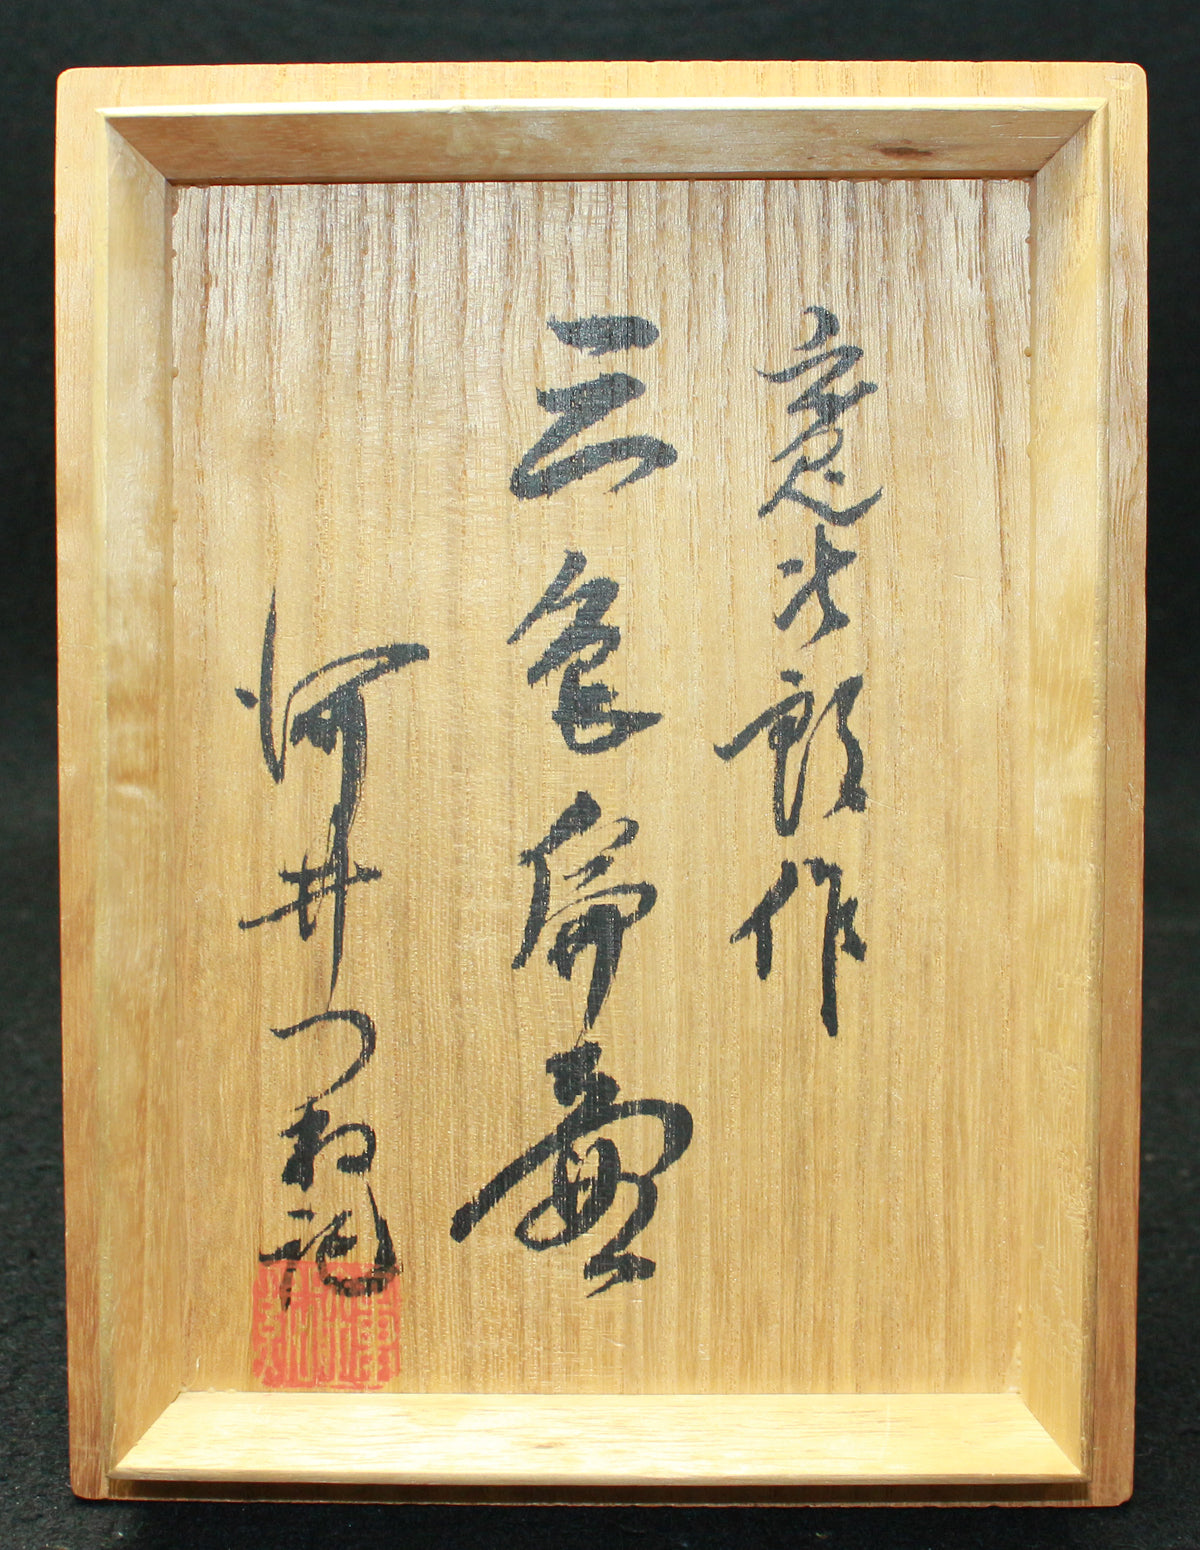 寛次郎作
三色扁壷
河井つね記